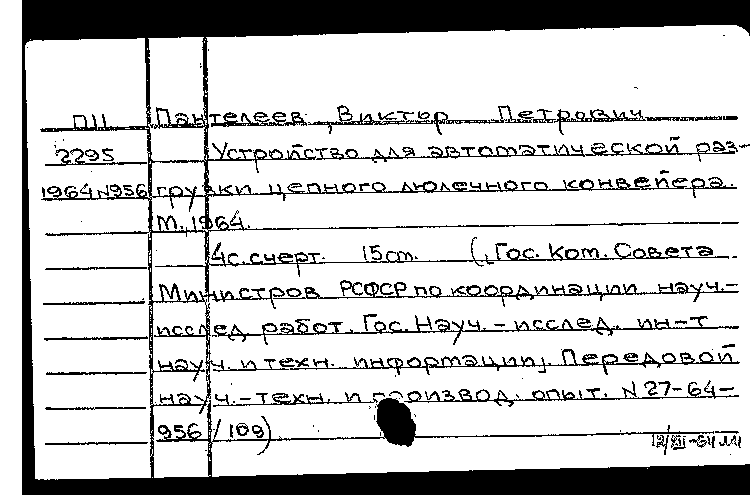 П11 Пантелеев, Виктор Петрович
2295 Устройство для автоматической раз-
1964№956 грузки цепного люлечного конвейера.
М., 1964.
4с. счерт. 15см. (, Гос. Ком. Совета
Министров РСФСР по координации науч.-
исслед. работ. Гос. Науч.-исслед. ин-т
науч. и техн. информации, Передовой
науч.-техн. и производ. опыт. N 27-64-
956/109)